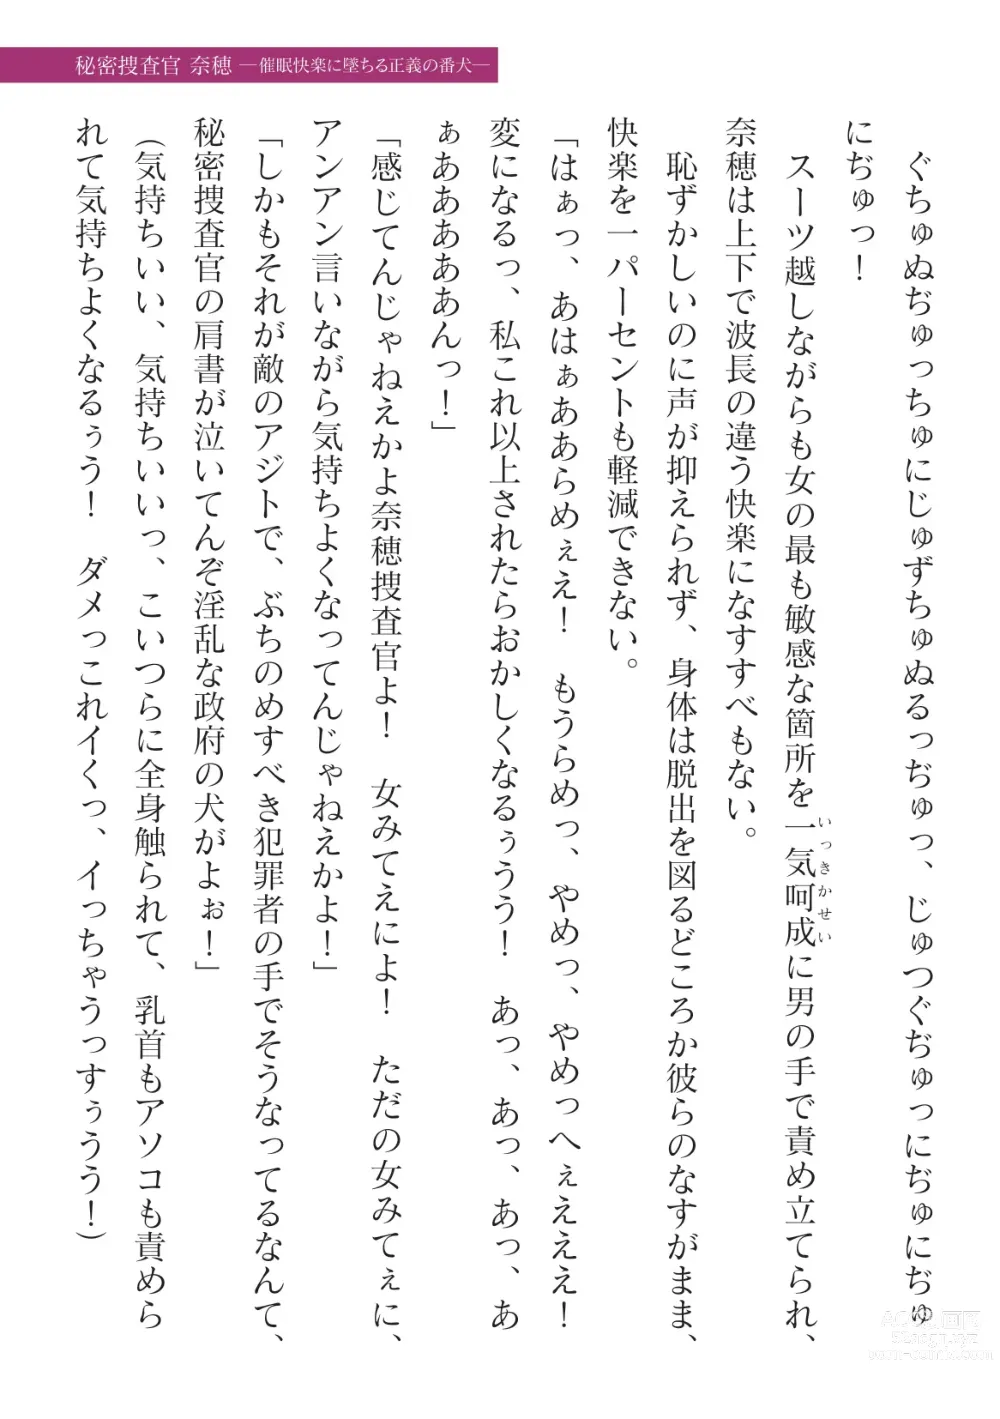 秘密捜査官 奈穂 ―催眠快楽に墜ちる正義の番犬―
ぐちゅぬぢゅっちゅにじゅずちゅぬるっぢゅっ、じゅつぐぢゅっにぢゅにぢゅ
にぢゅっ！
スーツ越しながらも女の最も敏感な箇所を一気呵成に男の手で責め立てられ、
いっきかせい
奈穂は上下で波長の違う快楽になすすべもない。
恥ずかしいのに声が抑えられず、身体は脱出を図るどころか彼らのなすがまま、
快楽を一パーセントも軽減できない。
「はぁっ、あはぁああらめぇえ！　もうらめっ、やめっ、やめっへぇえええ！
変になるっ、私これ以上されたらおかしくなるぅうう！　あっ、あっ、あっ、あ
ぁああああああんっ！」
「感じてんじゃねえかよ奈穂捜査官よ！　女みてえによ！　ただの女みてぇに、
アンアン言いながら気持ちよくなってんじゃねえかよ！」
「しかもそれが敵のアジトで、ぶちのめすべき犯罪者の手でそうなってるなんて、
秘密捜査官の肩書が泣いてんぞ淫乱な政府の犬がよぉ！」
（気持ちいい、気持ちいいっ、こいつらに全身触られて、乳首もアソコも責めら
れて気持ちよくなるぅう！　ダメっこれイくっ、イっちゃうっすぅうう！）